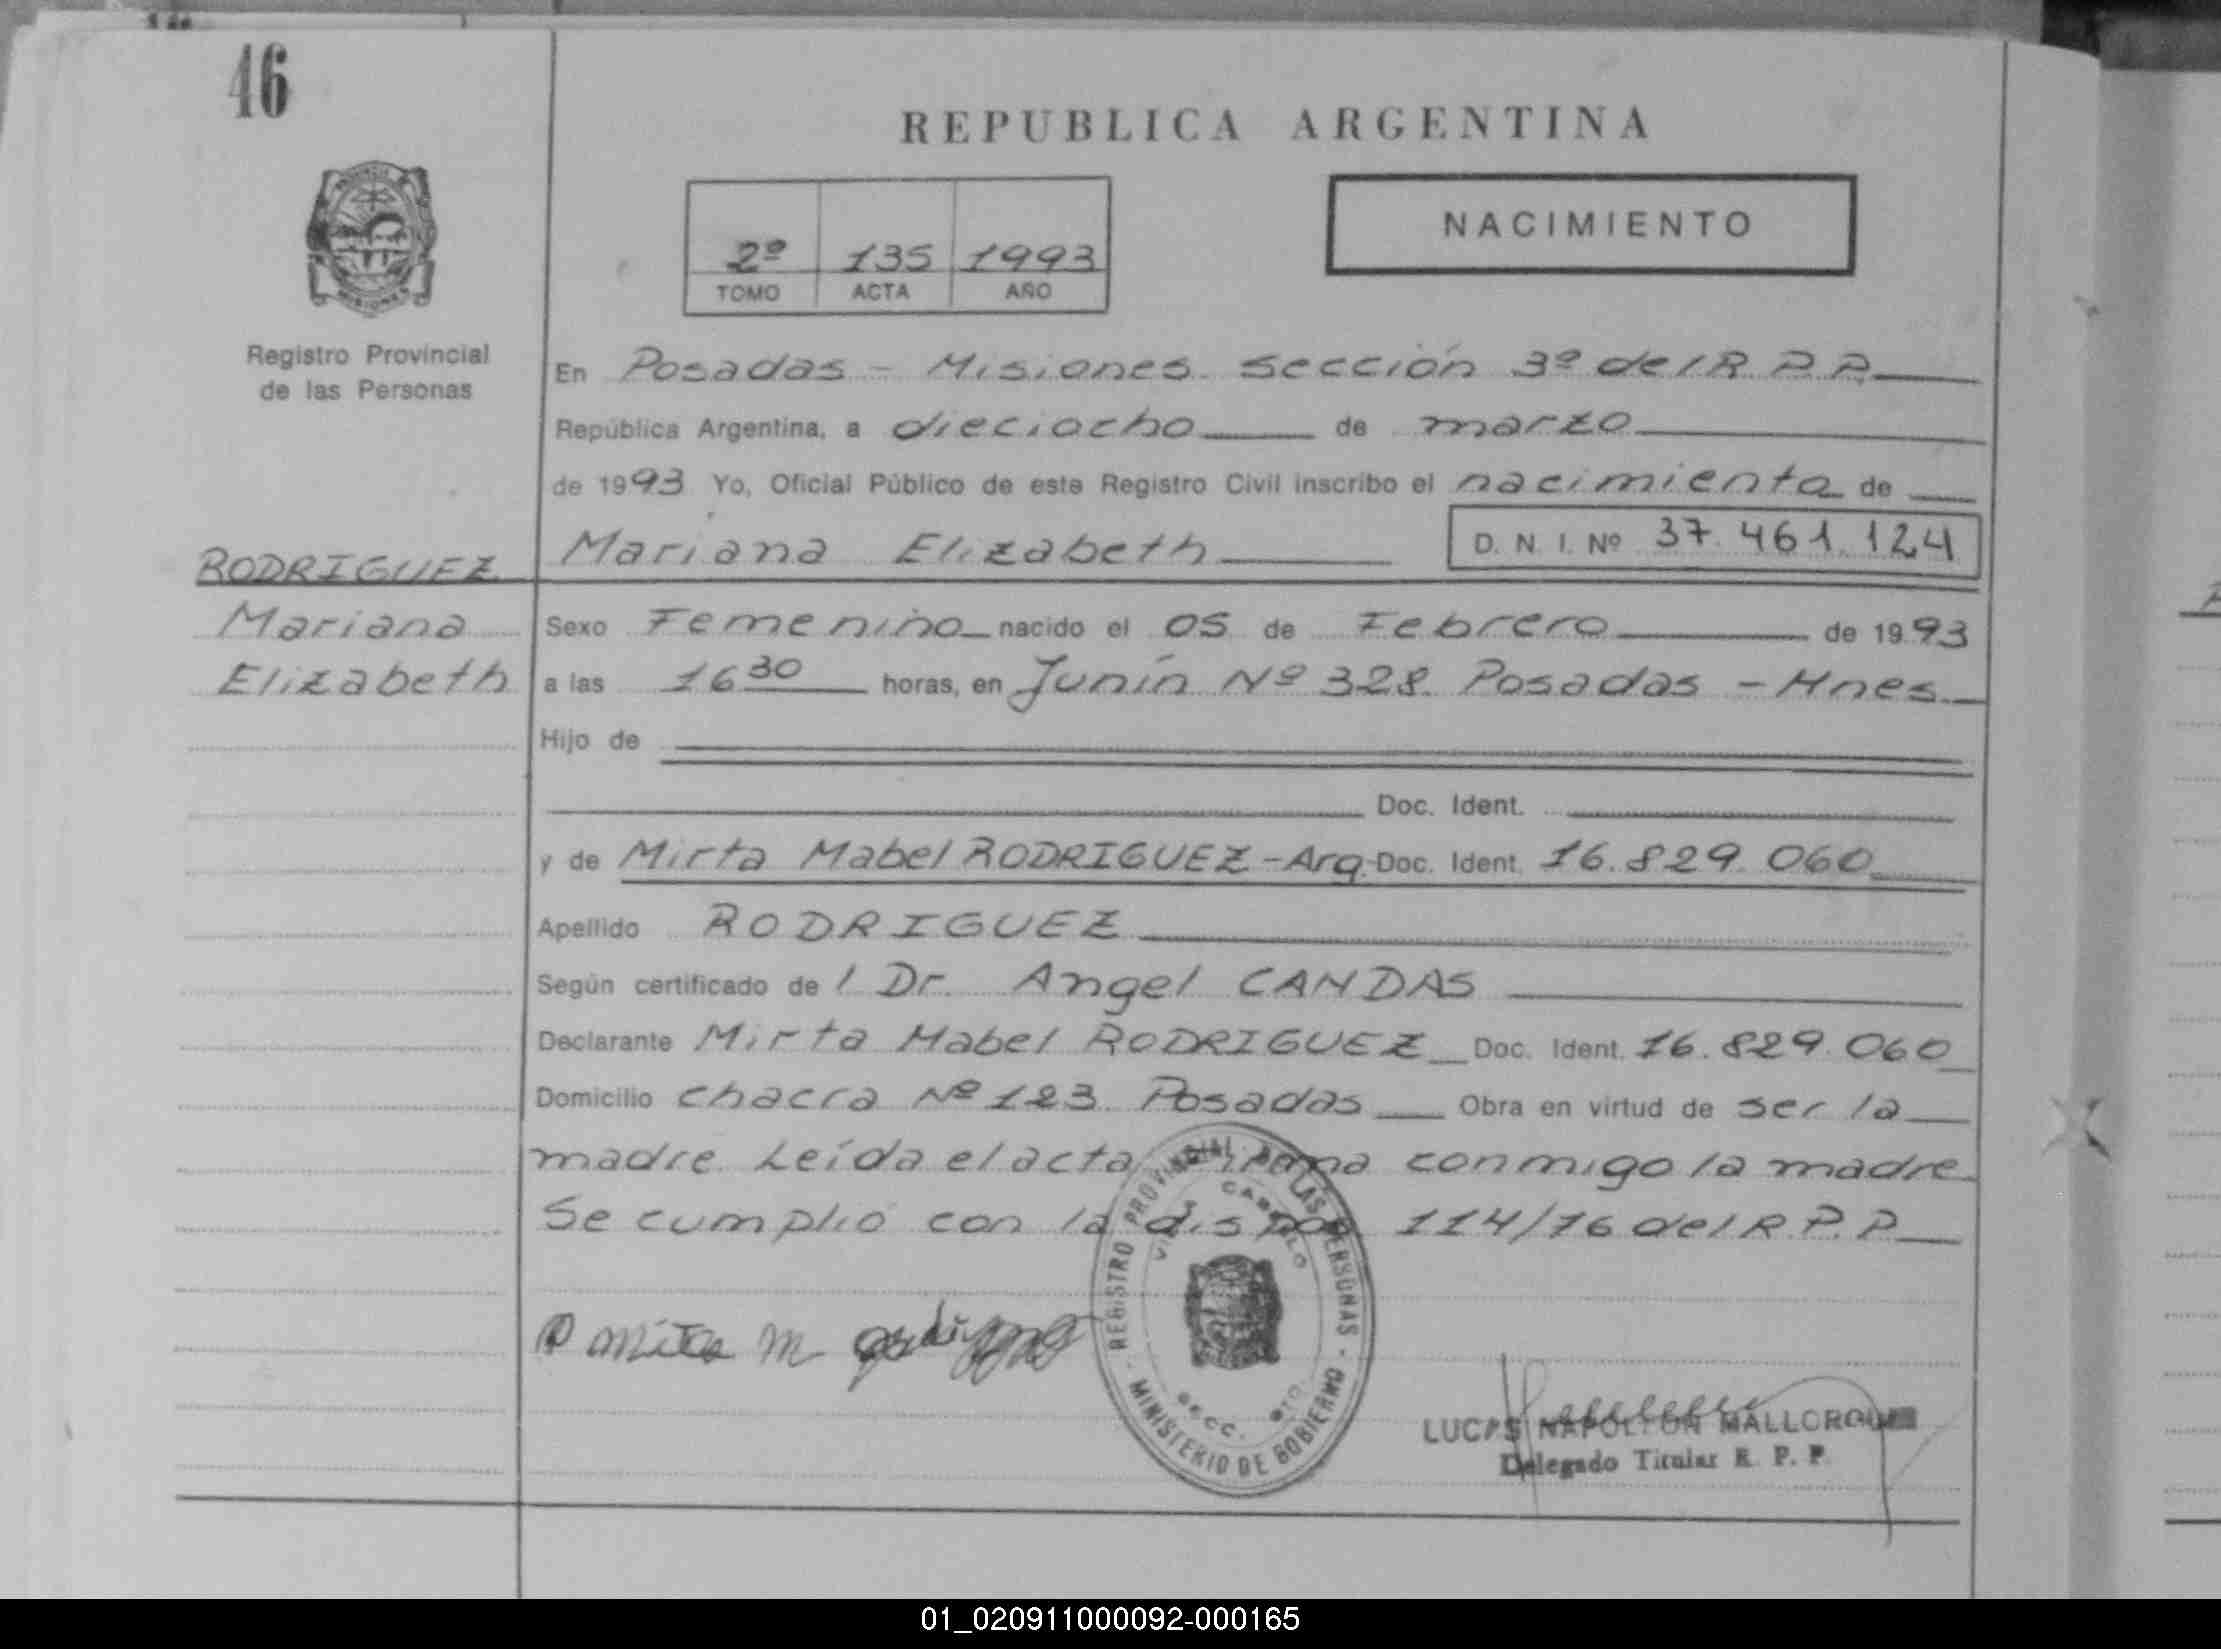 46
REPUBLICA ARGENTINA
2º 135 1993
TOMO ACTA AÑO
NACIMIENTO
PROVINCIA
MISIONES
Registro Provincial
de las Personas
En Posadas - Misiones. Sección 3º del R.P.P.
República Argentina, a dieciocho de marzo
de 1993 Yo, Oficial Público de este Registro Civil inscribo el nacimiento de
Mariana Elizabeth D. N. I. Nº 37.461.124
RODRIGUEZ
Mariana
Elizabeth
Sexo Femenino nacido el 05 de Febrero de 1993
a las 16 30 horas, en Junín Nº 328. Posadas - Mnes.
Hijo de
Doc. Ident.
y de Mirta Mabel RODRIGUEZ - Arg. Doc. Ident. 16.829.060
Apellido RODRIGUEZ
Según certificado de l Dr. Angel CANDAS
Declarante Mirta Mabel RODRIGUEZ Doc. Ident. 16.829.060
Domicilio chacra Nº 123. Posadas Obra en virtud de ser la
madre. Leída el acta firma conmigo la madre.
Se cumplió con la dispos. 114/76 del R.P.P.
REGISTRO PROVINCIAL DE LAS PERSONAS - MINISTERIO DE GOBIERNO
VILLA CABELLO
SECC.
Mirta M
LUCAS NAPOLEON MALLORQUIN
Delegado Titular R. P. P.
01_020911000092-000165